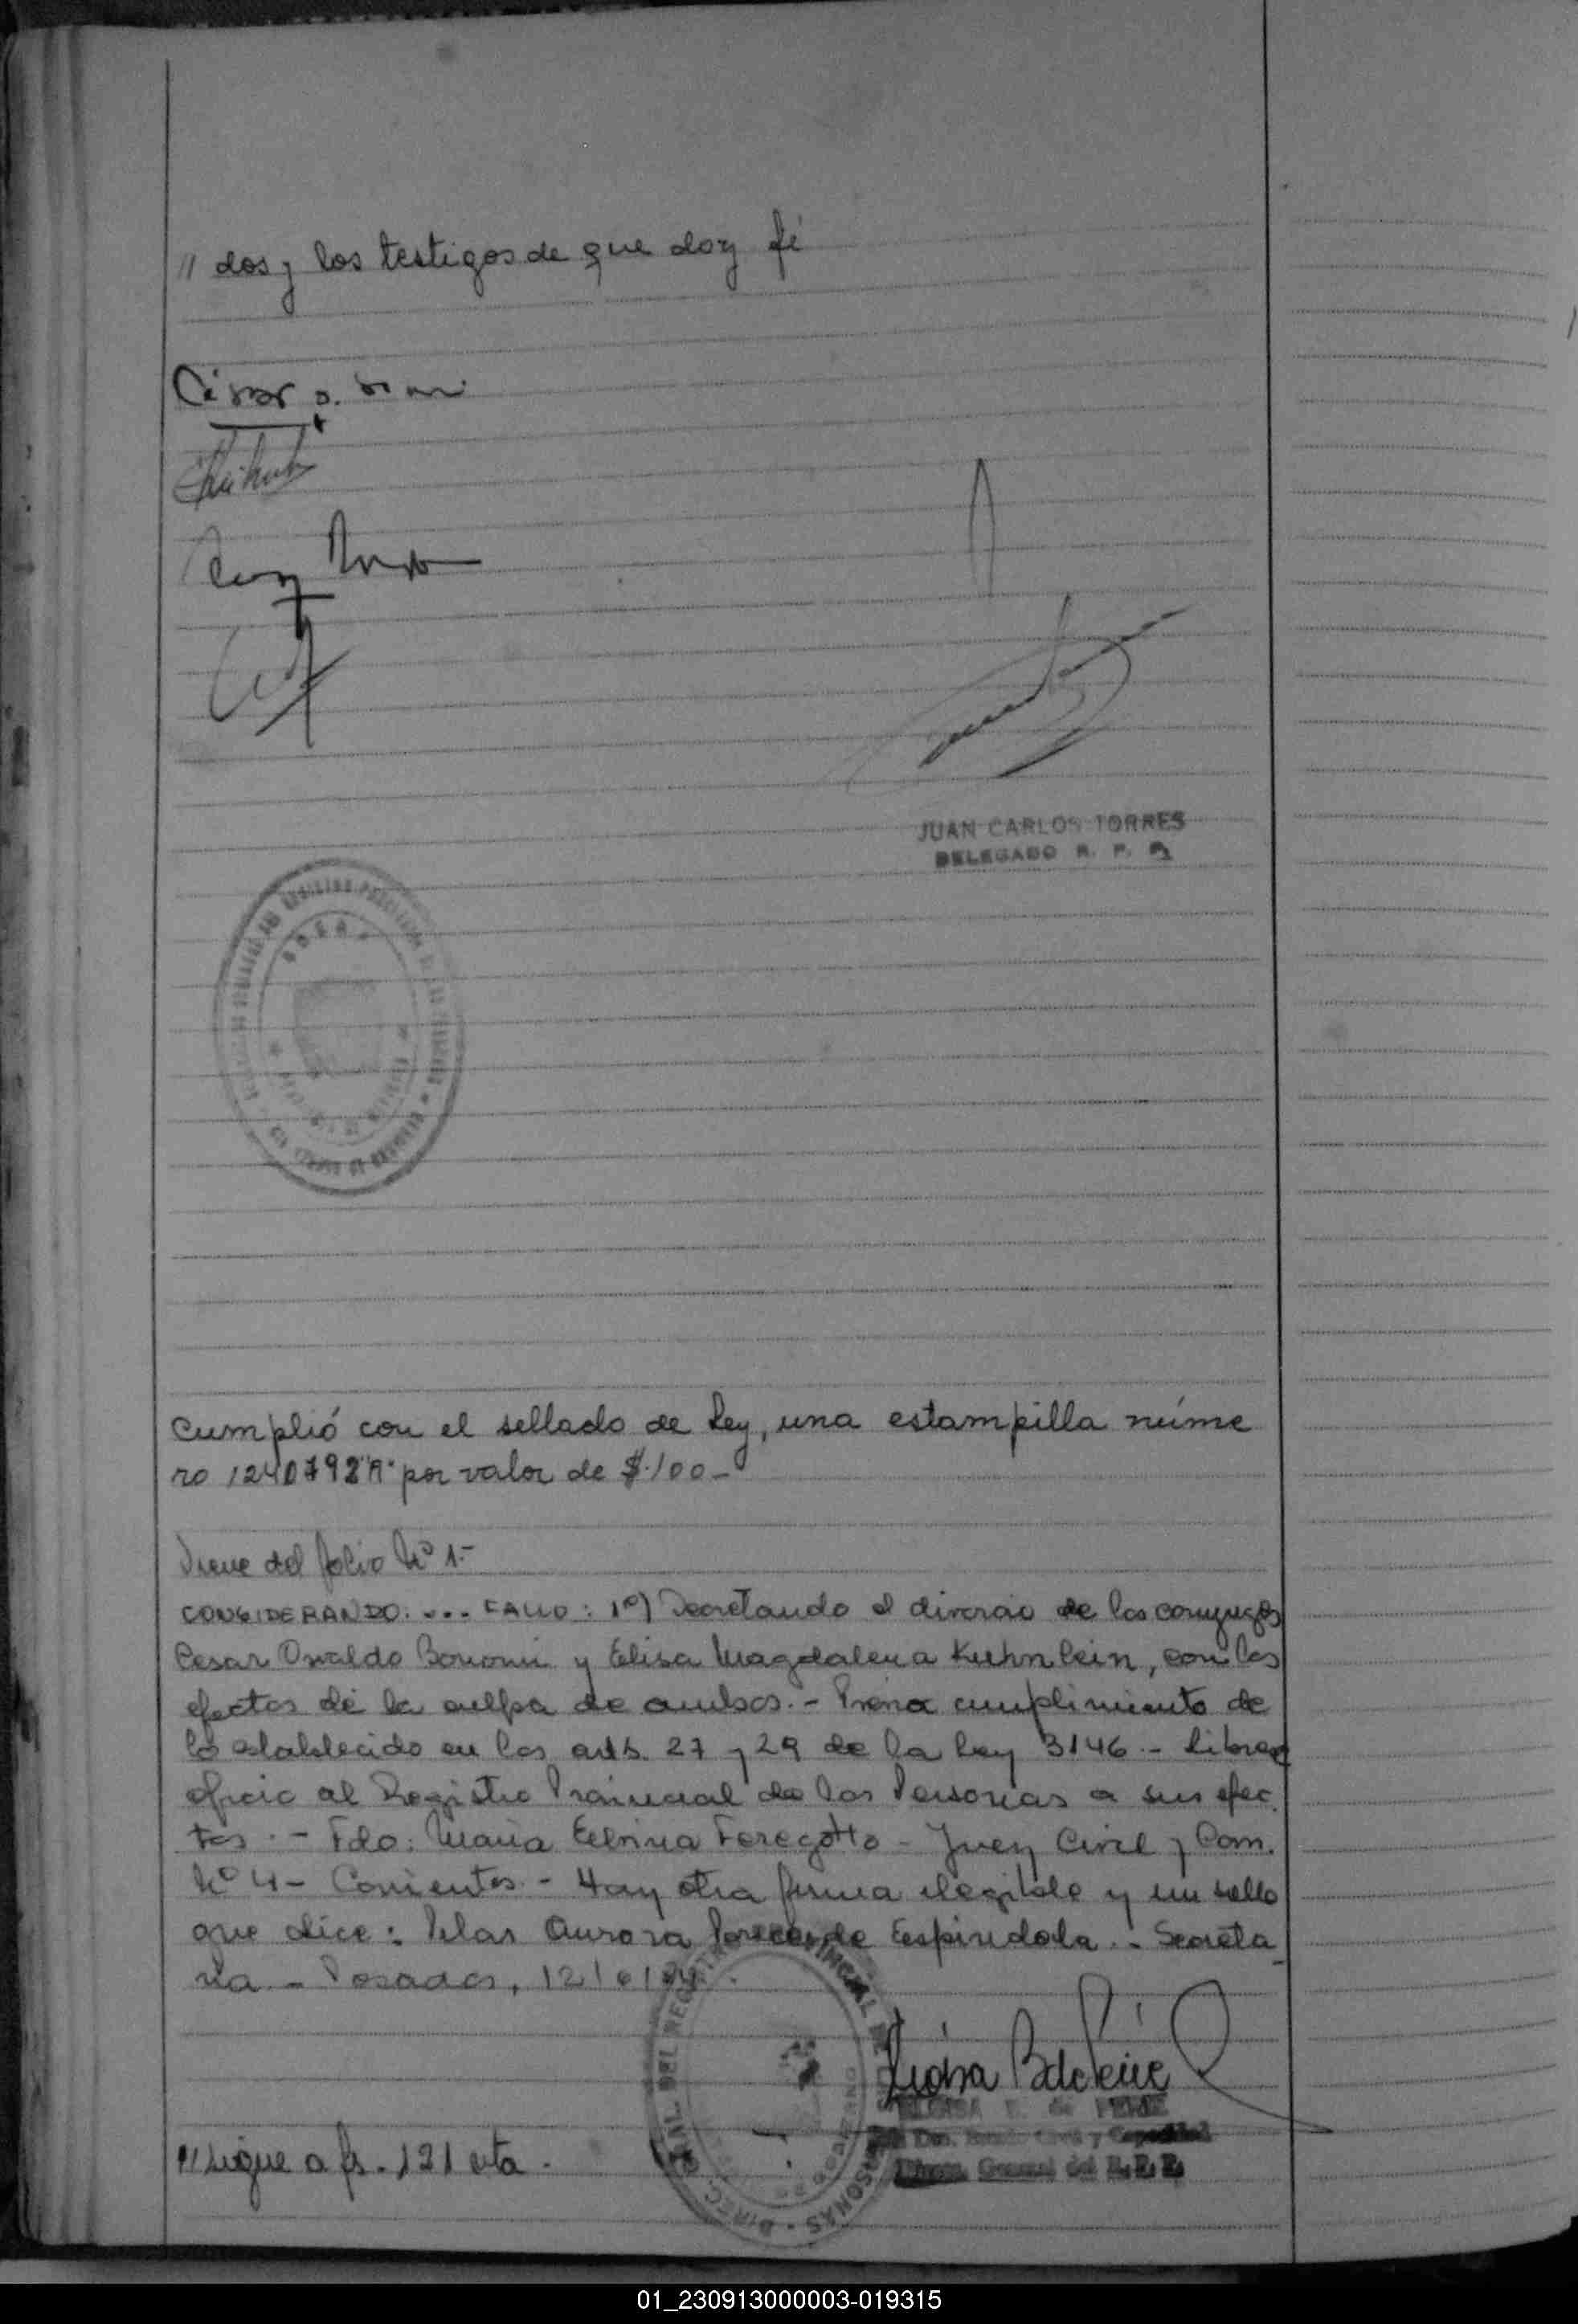 // dos y los testigos de que doy fé
César O.
JUAN CARLOS TORRES
DELEGADO R. P. P.
Cumplió con el sellado de Ley, una estampilla núme
ro 1240792"A" por valor de $.100-
Viene del folio Nº 1.-
CONSIDERANDO: ... FALLO: 1º) Decretando el divorcio de los conyuges
Cesar Osvaldo Bonomi y Elisa Magdalena Kuhnlein, con los
efectos de la culpa de ambos.- Previo cumplimiento de
lo establecido en los arts. 27 y 29 de la Ley 3146.- Librese
oficio al Registro Provincial de las Personas a sus efec
tos.- Fdo: Maria Foregotto - Juez Civil y Com.
Nº 4- Corrientes.- Hay otra firma ilegible y un sello
que dice: Pilar Aurora de Espindola.- Secreta
ria.- Posadas, 12/6/
DEL REGISTRO PROVINCIAL DE LAS PERSONAS
ELOISA B. de PEREZ
Civil y Capacidad
General del R.P.P.
// Sigue a fs. 121 vta.
01_230913000003-019315